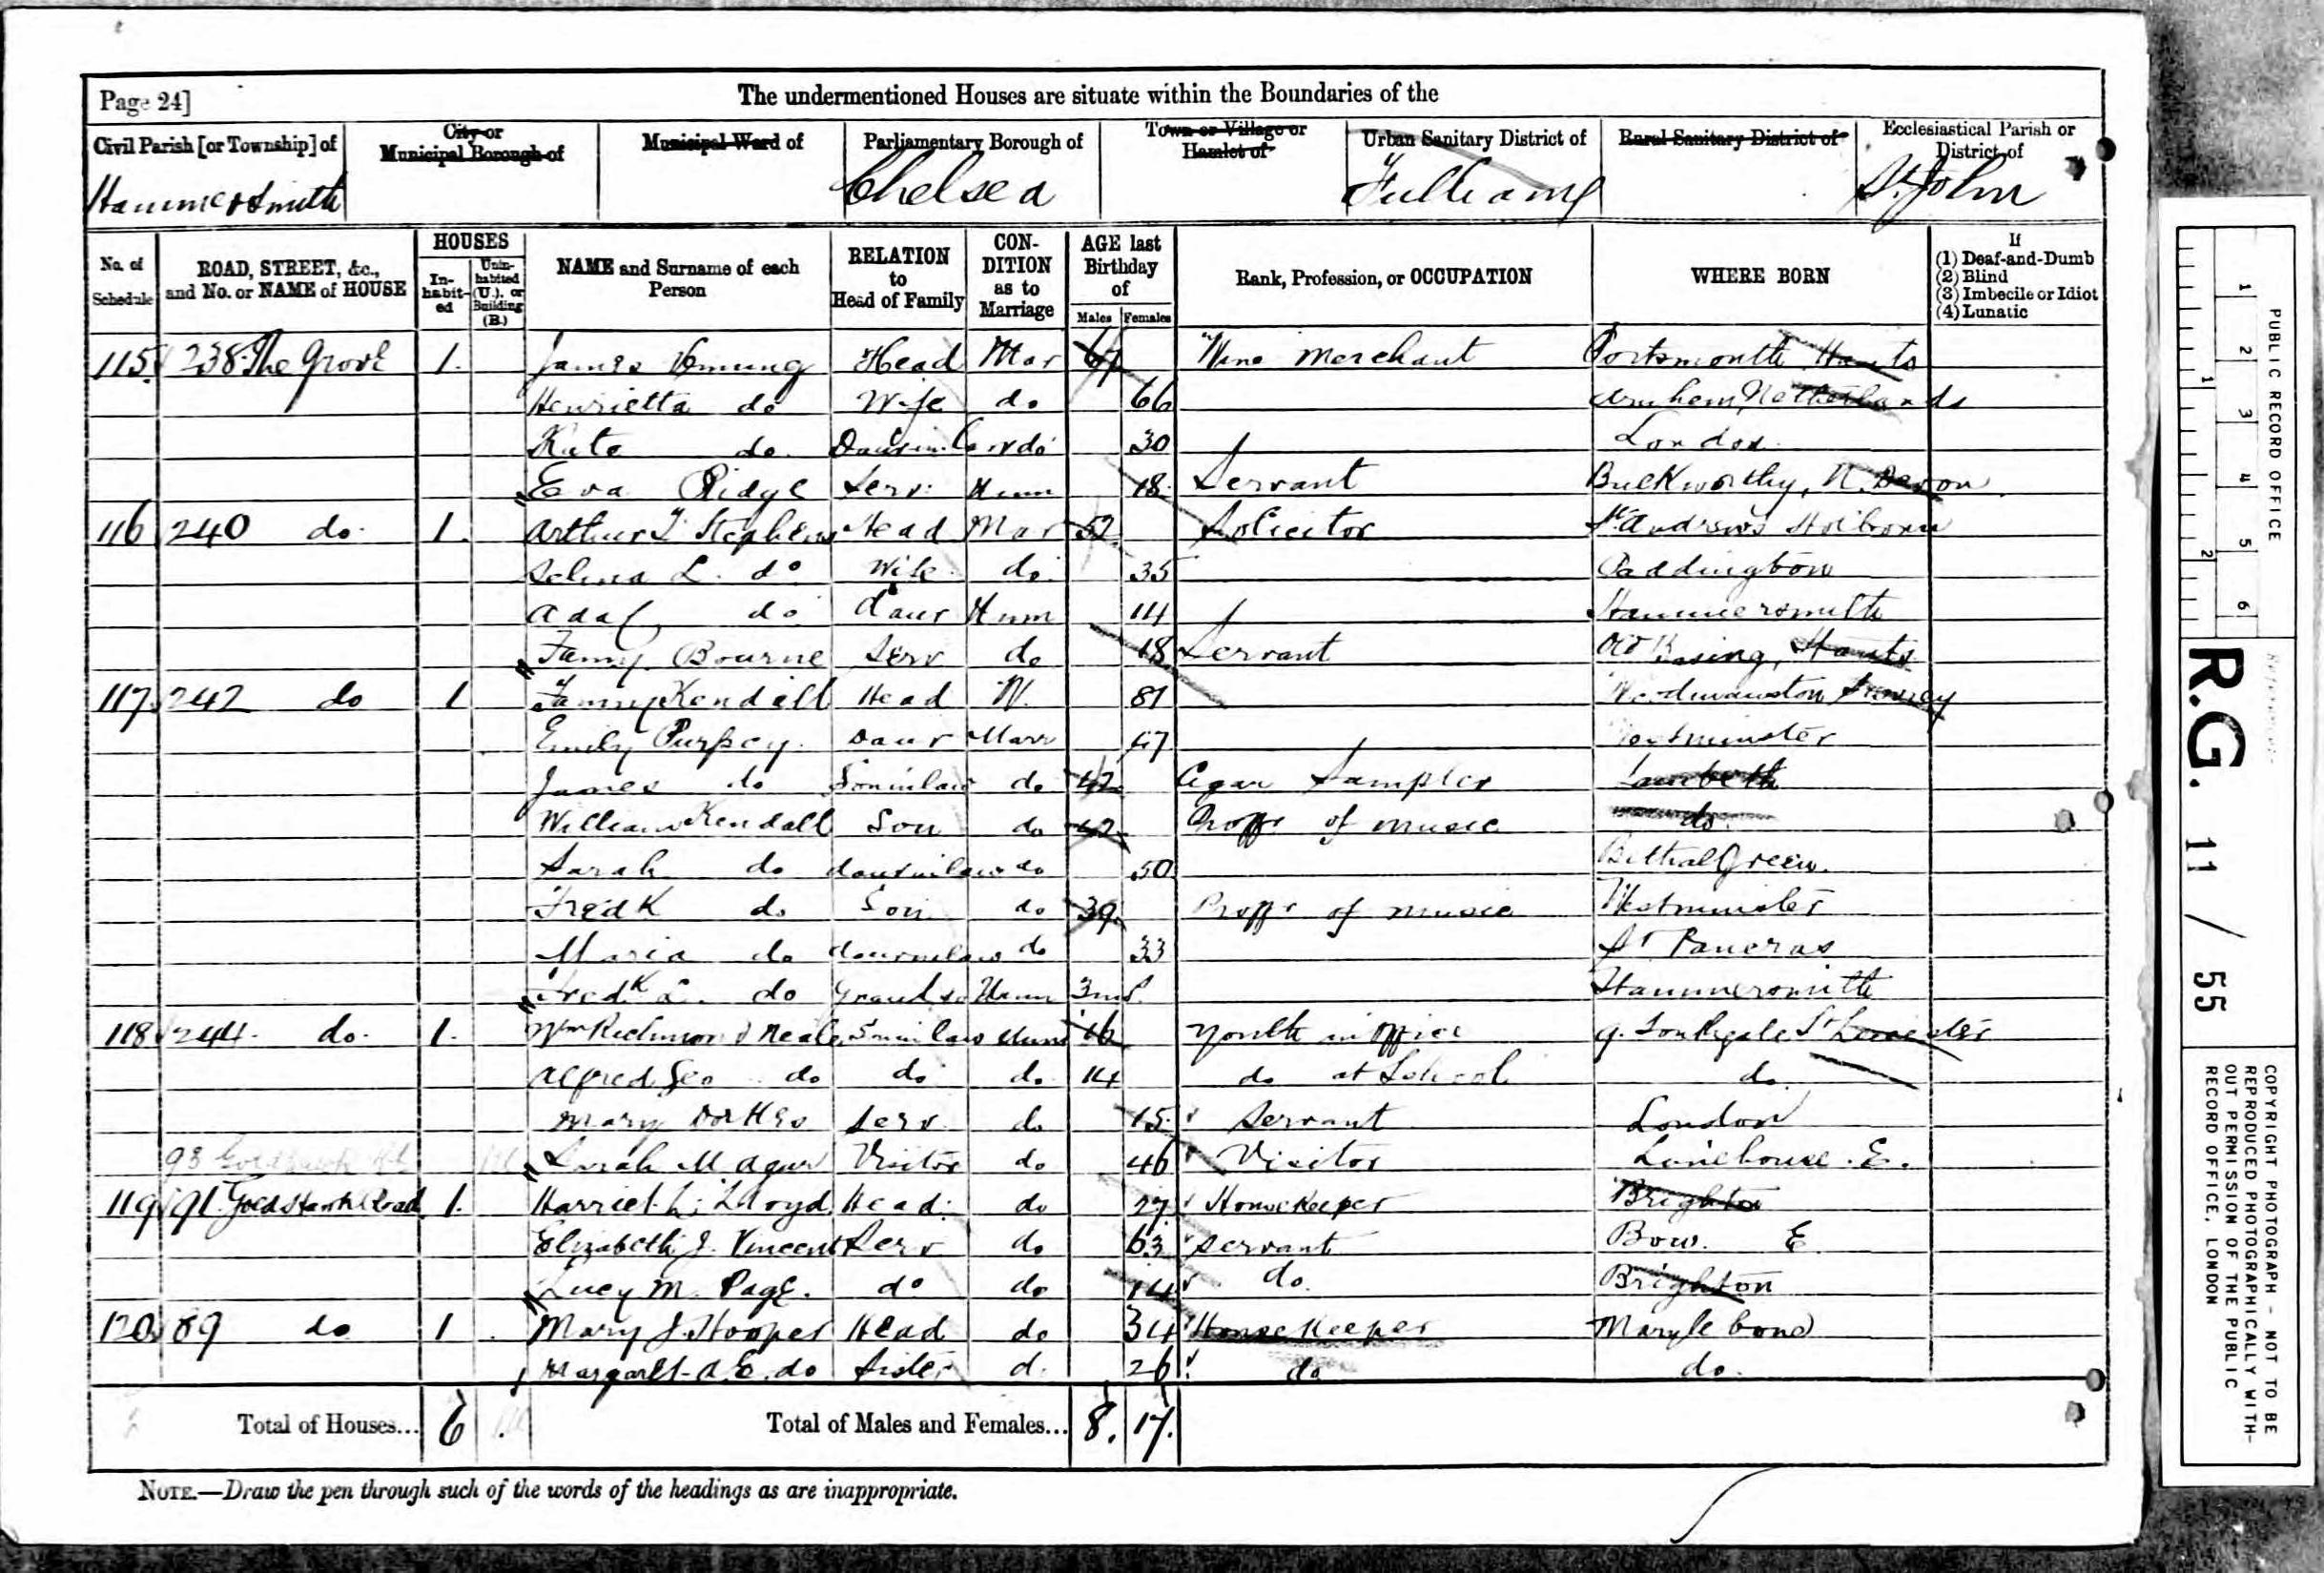 Page 24]
The undermentioned Houses are situate within the Boundaries of the
Civil Parish [or Township] of
City or Municipal Borough of
Municipal Ward of
Parliamentary Borough of
Town or Village or Hamlet of
Urban Sanitary District of
Rural Sanitary District of
Ecclesiastical Parish or District of
Hammersmith Chelsea Fulham St. John
No. of Schedule
ROAD, STREET, &c., and No. or NAME of HOUSE
HOUSES
Inhabited
Uninhabited (U.), or Building (B.)
NAME and Surname of each Person
RELATION to Head of Family
CONDITION as to Marriage
AGE last Birthday of
Males Females
Rank, Profession, or OCCUPATION
WHERE BORN
If
(1) Deaf-and-Dumb
(2) Blind
(3) Imbecile or Idiot
(4) Lunatic
115 238 The Grove 1 James Head Mar Wine Merchant Portsmouth Hants
Henrietta do Wife do 66 Arnhem, Netherlands
Kate do 30 London
Eva Ridge Serv Unm 18 Servant Buckworthy, N. Devon
116 240 do 1 Arthur T Stephens Head Mar 52 Solicitor St Andrews Holborn
Selina L. do Wife do 35 Paddington
Ada do daur Unm 14 Hammersmith
Fanny Bourne Serv do 18 Servant Old Basing, Hants
117 242 do 1 Fanny Kendall Head W 81 Surrey
Emily Purssey Daur Marr 47 Westminster
James do Soninlaw do 42 Cigar Sampler Lambeth
William Kendall Son do 42 Proffr of music do
Sarah do daurinlaw do 50 Bethal Green
Fredk do Son do 39 Proffr of music Westminster
Maria do daurinlaw do 33 St Pancras
Fredk L. do Grandso Unm 3 ms Hammersmith
118 244 do 1 Wm Richmond Neale Soninlaw Unm 16 Youth in office
Alfred Geo do do do 14 do at School do
Mary Serv do 15 Servant London
93 Goldhawk Rd Sarah Visitor do 46 Visitor Limehouse E.
119 91 Goldhawk Road 1 Harriet L. Lloyd Head do 27 Housekeeper Brighton
Elizabeth J. Vincent Serv do 63 servant Bow E
Lucy M. Page do do 14 do Brighton
120 89 do 1 Mary J. Hooper Head do 34 Housekeeper Marylebone
Margaret A. E. do Sister do 26 do do
Total of Houses... 6 Total of Males and Females... 8. 17.
NOTE.—Draw the pen through such of the words of the headings as are inappropriate.
PUBLIC RECORD OFFICE
1 2 3 4 5 6
1 2
Reference:-
R.G. 11 / 55
COPYRIGHT PHOTOGRAPH - NOT TO BE
REPRODUCED PHOTOGRAPHICALLY WITH-
OUT PERMISSION OF THE PUBLIC
RECORD OFFICE, LONDON